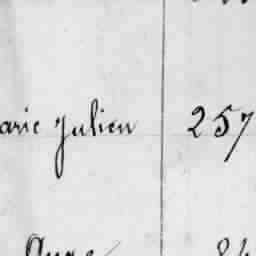 arie Julien 257